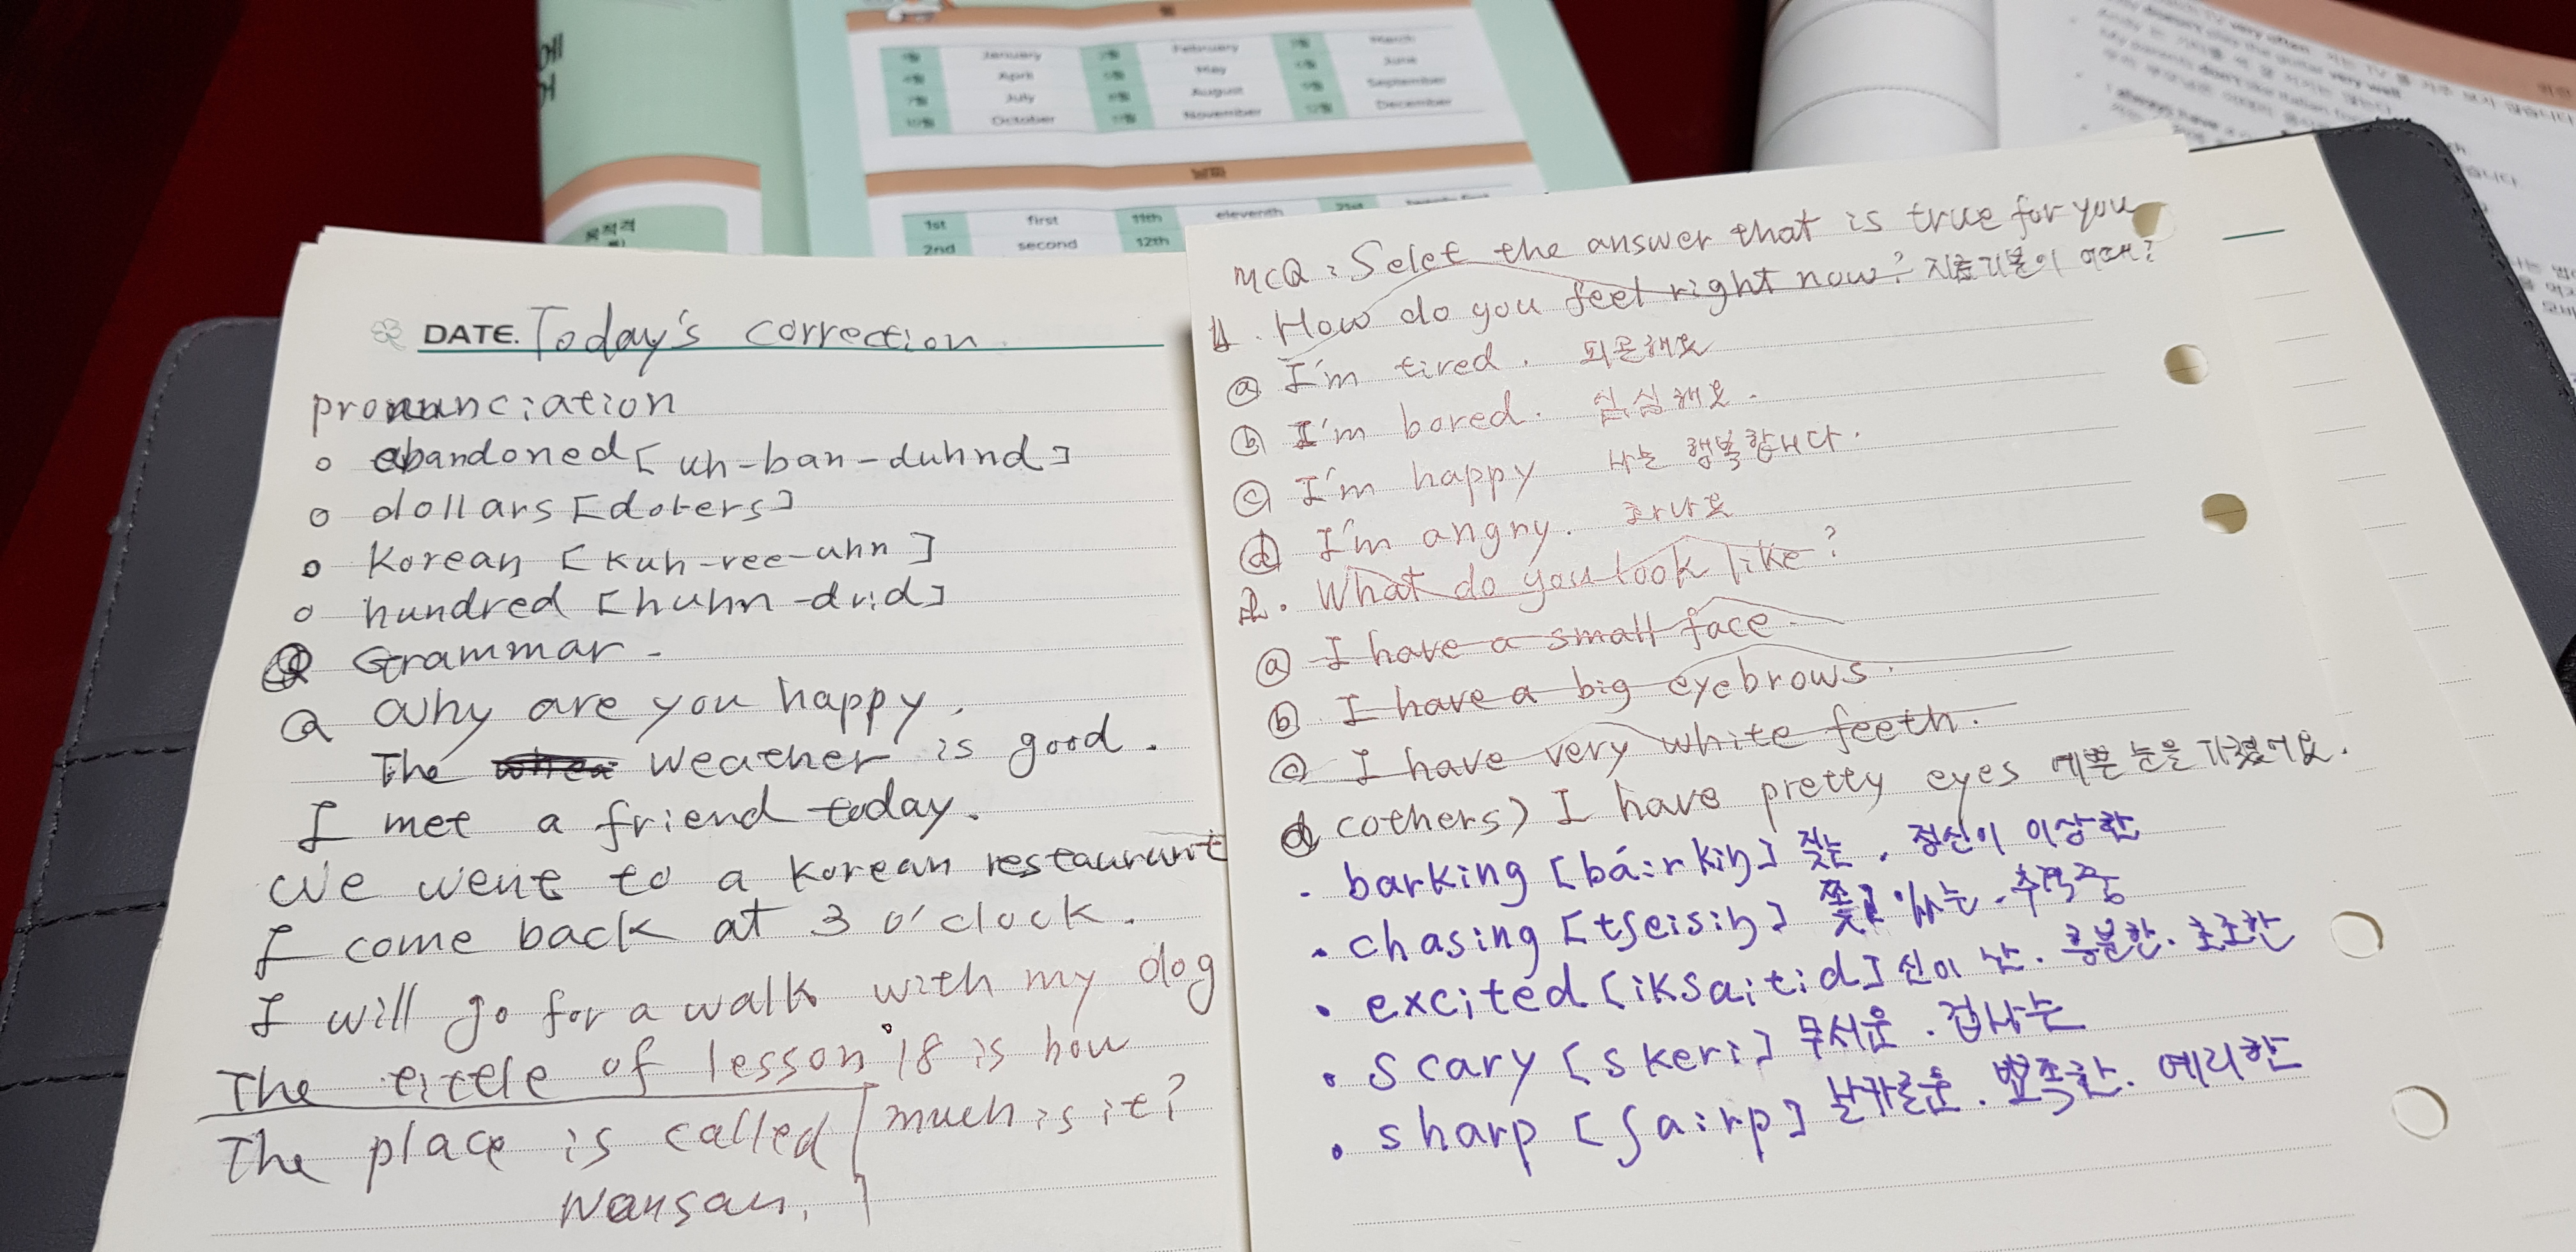 January February March
April May June
July August September
October November December
1st first 11th eleventh 21st
2nd second 12th
DATE. Today's correction
pronunciation
abandoned [uh-ban-duhnd]
dollars [dolers]
Korean [Kuh-ree-uhn]
hundred [huhn-drid]
Grammar
Q Why are you happy.
The weather is good.
I met a friend today.
We went to a Korean restaurant
I come back at 3 o'clock.
I will go for a walk with my dog
The tittle of lesson 18 is how
much is it?
The place is called
Wansan.
MCQ : Selet the answer that is true for you
1. How do you feel right now? 지금기분이 어때?
ⓐ I'm tired. 피곤해요
ⓑ I'm bored. 심심해요.
ⓒ I'm happy 나는 행복합니다.
ⓓ I'm angry. 화나요
2. What do you look like?
ⓐ I have a small face.
ⓑ I have a big eyebrows.
ⓒ I have very white teeth.
ⓓ (others) I have pretty eyes 예쁜 눈을 가졌어요.
- barking [bá:rkiŋ] 짖는, 정신이 이상한
• chasing [tʃeisiŋ] 쫓고 있는. 추적중
• excited [iksaitid] 신이 난. 흥분한. 초조한
• scary [skeri] 무서운. 겁나는
• sharp [ʃa:rp] 날카로운. 뾰족한. 예리한